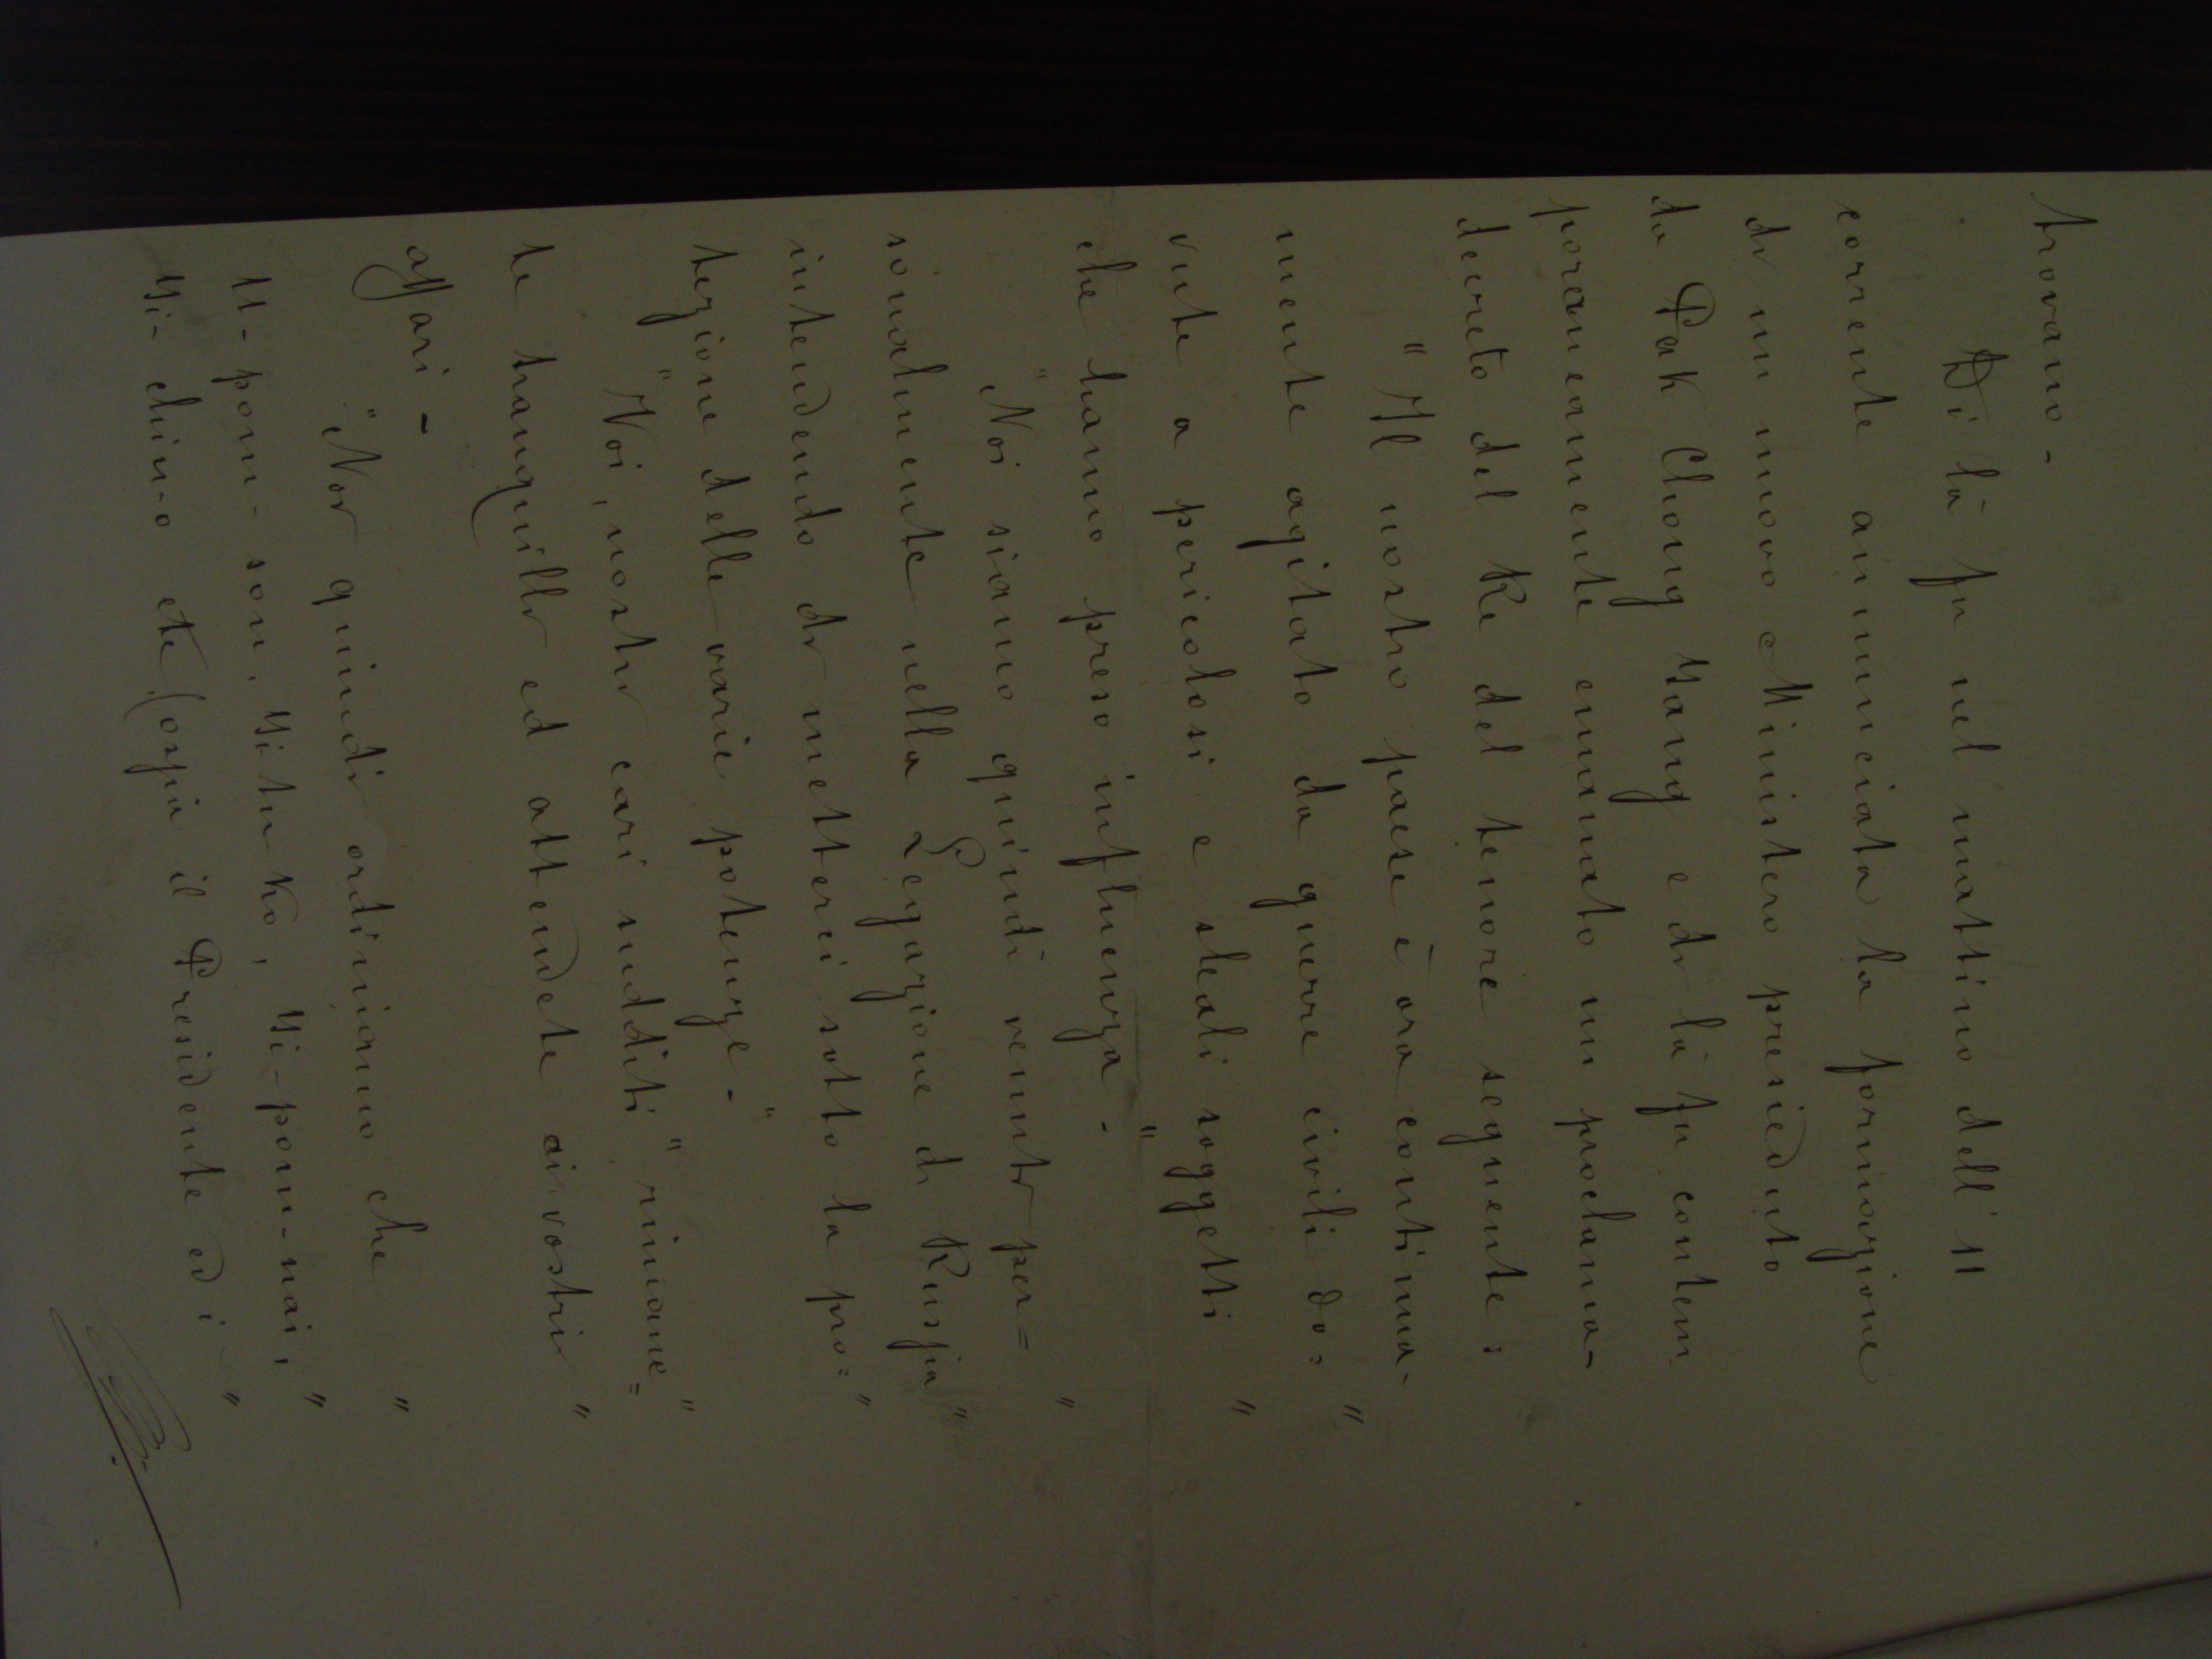 trovano -
Di là fu nel mattino dell' 11
corrente annunciata la formazione
di un nuovo Ministero presieduto
da Pak Chong Yang e di là fu contem
poraneamente emanato un proclama-
decreto del Re del tenore seguente:
"Il nostro paese è ora continua-
mente agitato da guerre civili do= "
vute a pericolosi e sleali soggetti "
che hanno preso influenza - "
"Noi siamo quindi venuti per= "
sonalmente nella Legazione di Russia "
intendendo di metterci sotto la pro= "
tezione delle varie potenze - "
"Voi, nostri cari sudditi" rimane= "
te tranquilli ed attendete ai vostri "
affari -
"Noi quindi ordiniamo che "
U-pom-son, Yi tu Ko, Yi-pom-nai, "
Yi-chin-o etc (ossia il Presidente ed i "